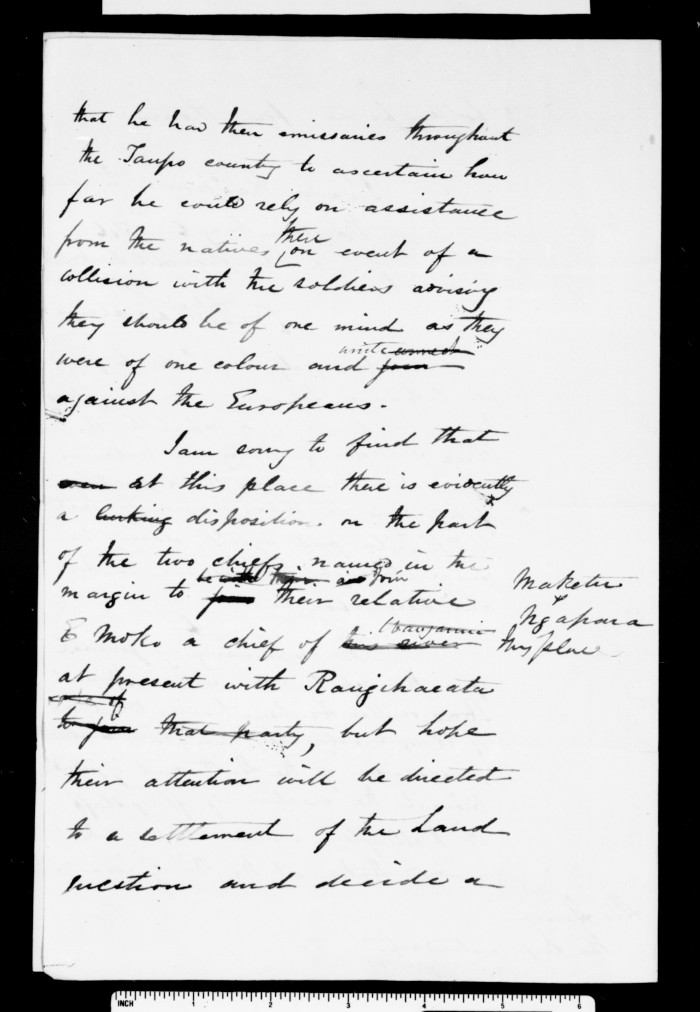 that he had then emissaries throughout
the Taupo country to ascertain how
far he could rely on assistance
there
from the natives on event of a
collision with the soldiers advising
they should be of one mind as they
unite
were of one colour and join
against the Europeans.
I am sorry to find that
even at this place there is evidently
a lurking disposition on the part
of the two chiefs named in the
join
margin to join their relative
Maketu
& Ngapara
Wanganui
E Moko a chief of this river
this place
at present with Rangihaeata
to join that party, but hope
their attention will be directed
to a settlement of the Land
question and decide a
INCH 1 2 3 4 5 6